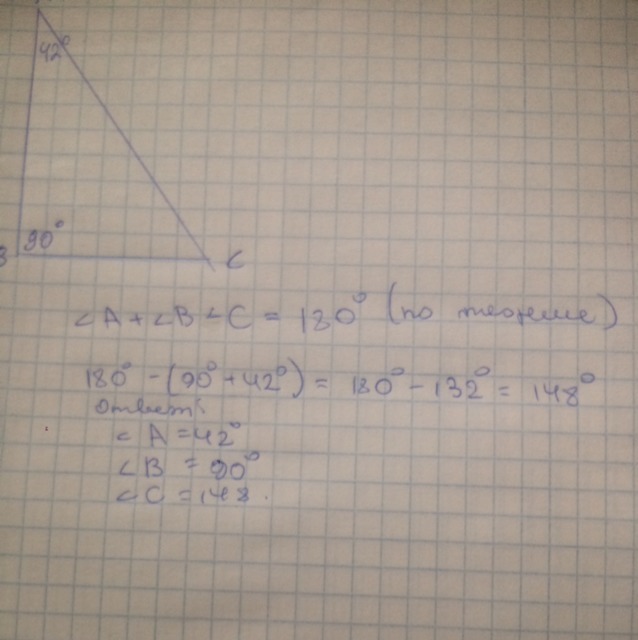 42°
90°
C
∠A+∠B ∠C = 180° (по теореме)
180° - (90° + 42°) = 180° - 132° = 148°
Ответ:
∠A = 42°
∠B = 90°
∠C = 148.